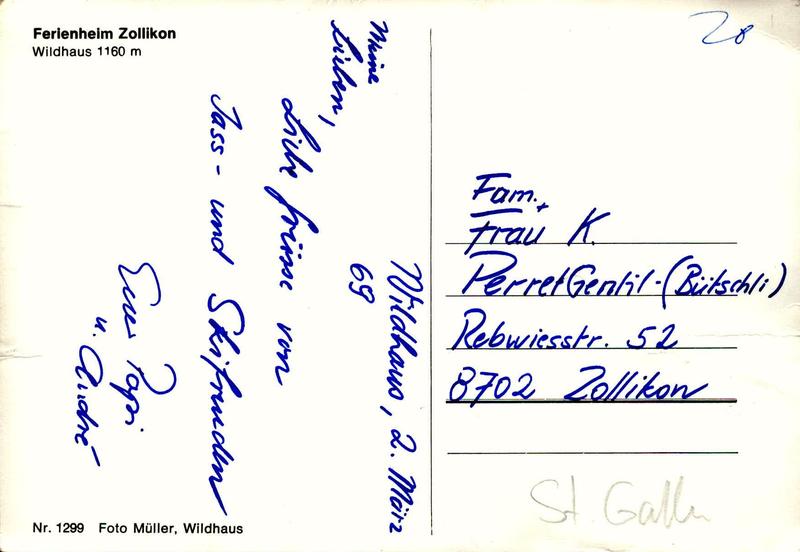 Ferienheim Zollikon
Wildhaus 1160 m
Wildhaus, 2. März
69
Meine
Lieben,
Liebe Grüsse von
Jass- und Skifreuden
Euer Papi
u. André
Nr. 1299 Foto Müller, Wildhaus
28
Fam. +
Frau K.
Perret Gentil-(Bütschli)
Rebwiesstr. 52
8702 Zollikon
St. Gallen